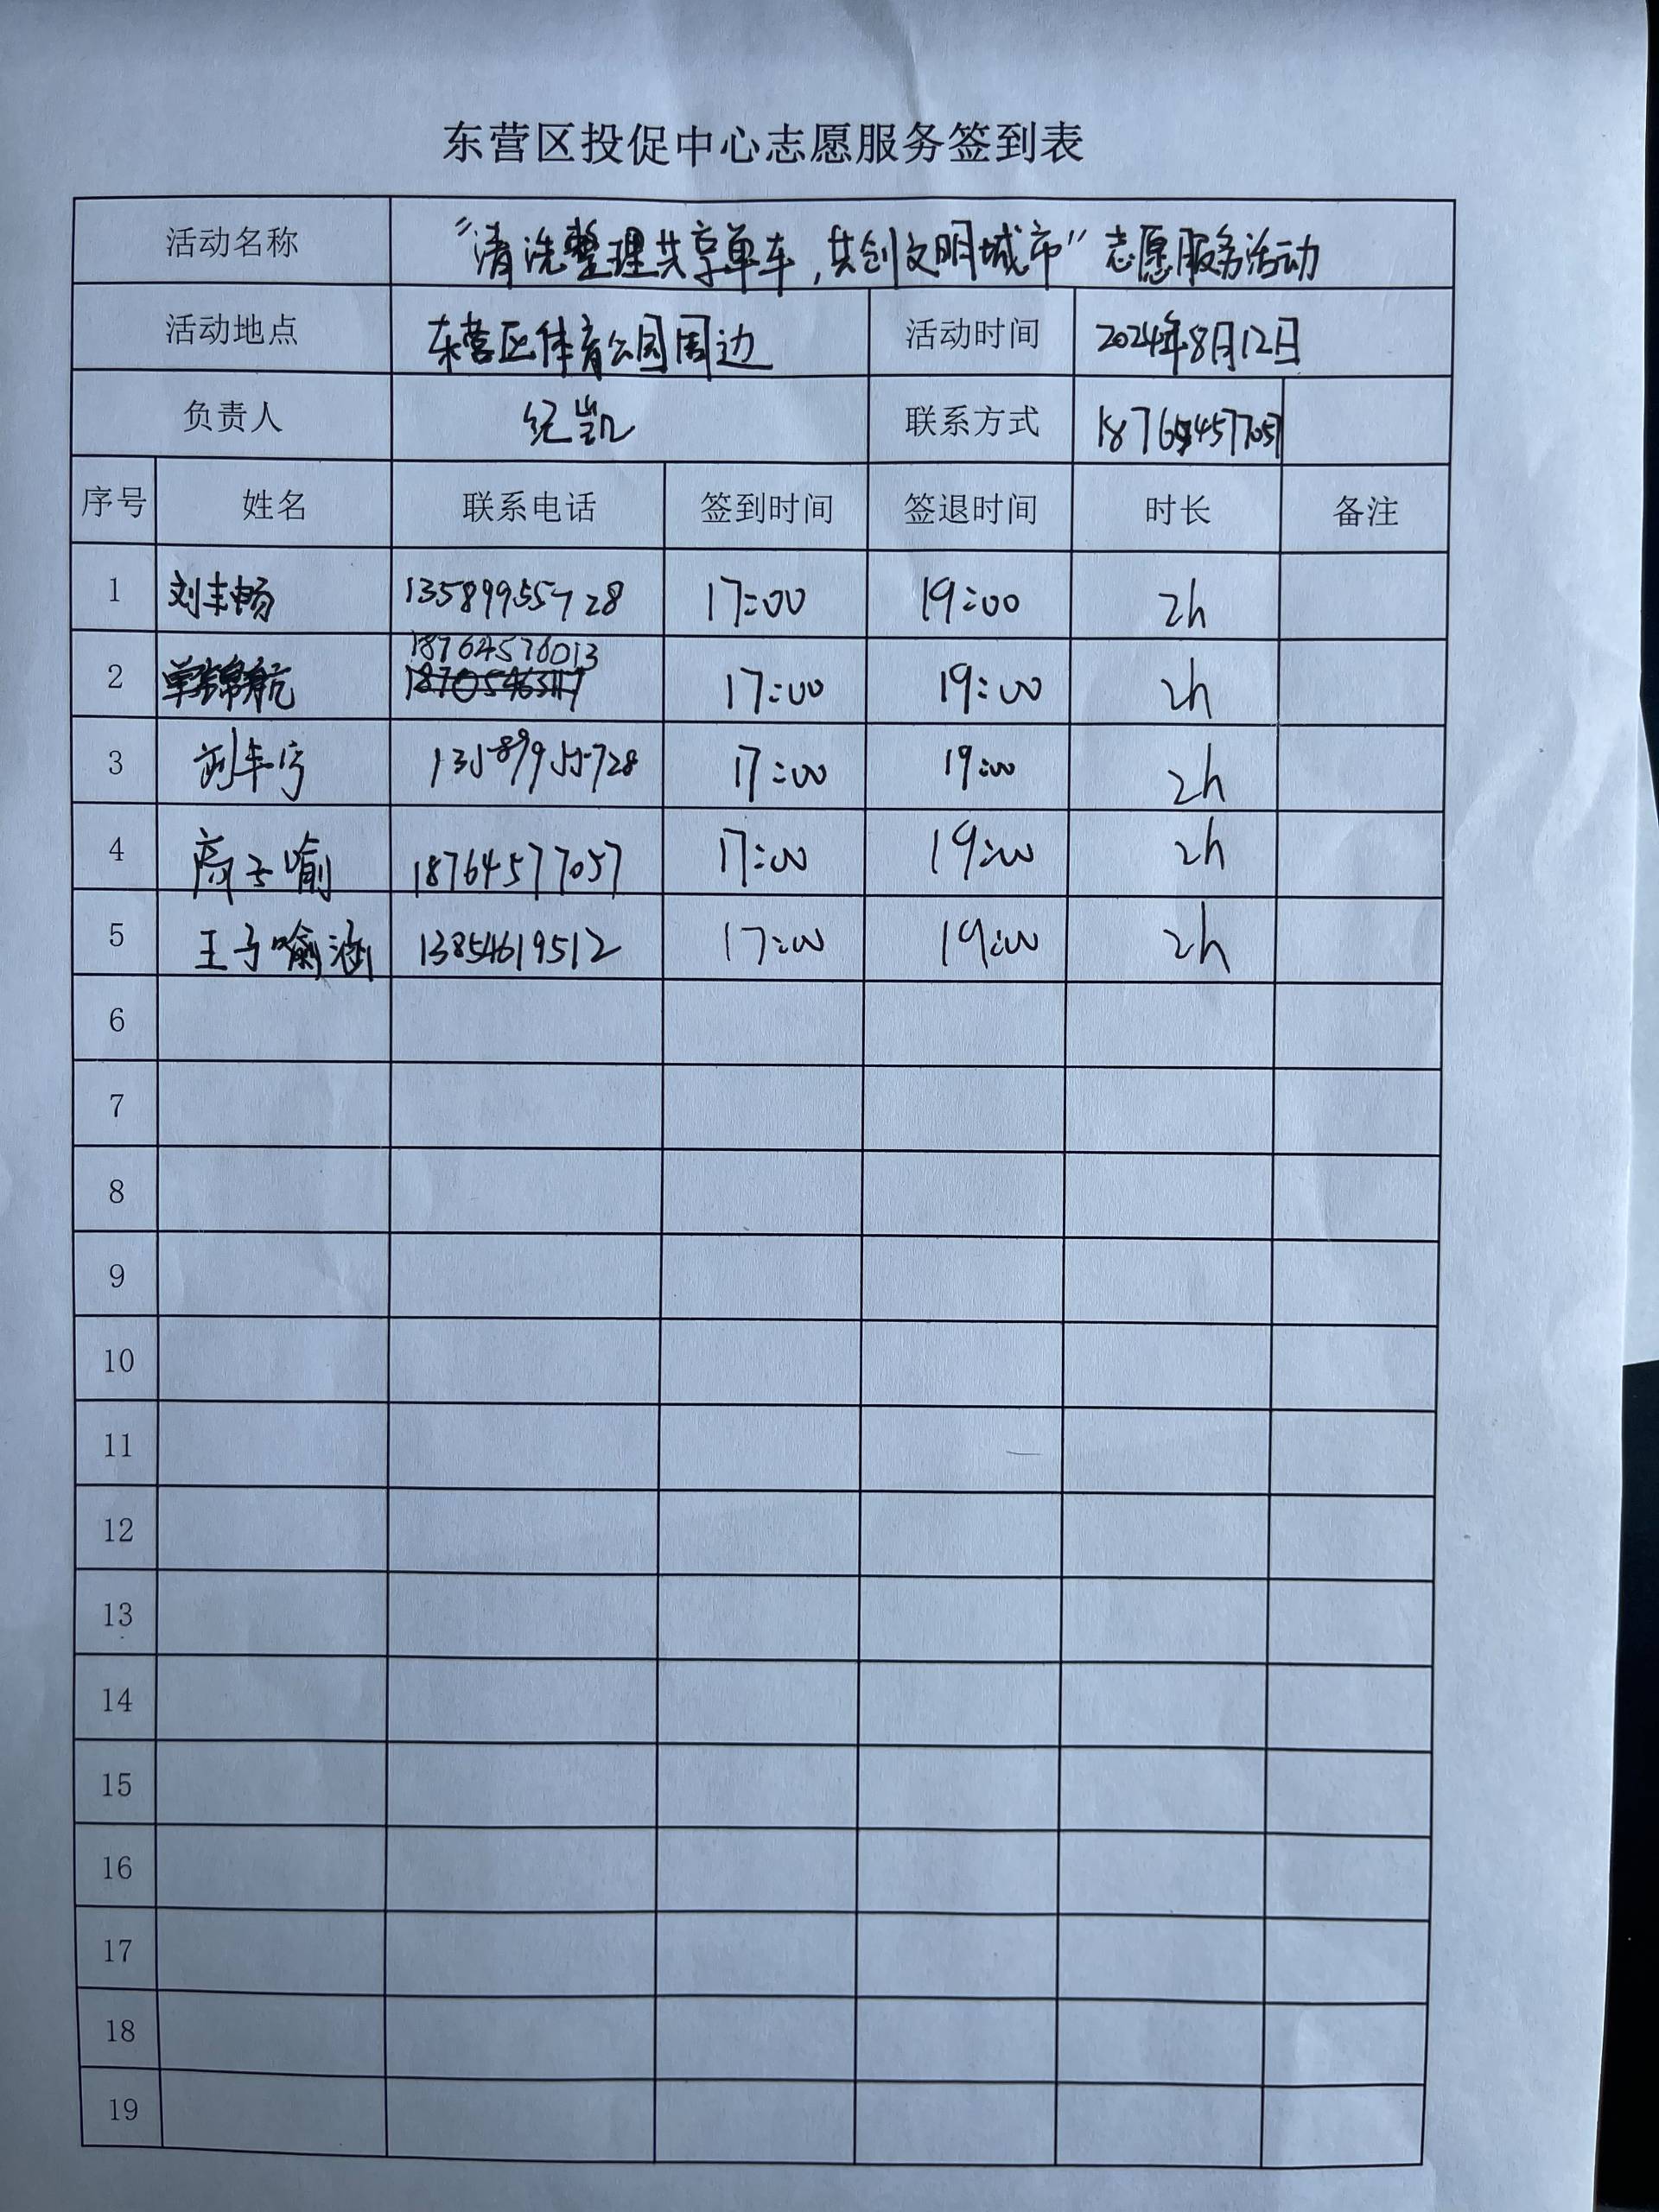 东营区投促中心志愿服务签到表
活动名称 “清洗整理共享单车,共创文明城市”志愿服务活动
活动地点 东营区体育公园周边 活动时间 2024年8月12日
负责人 纪凯 联系方式 18764577057
序号 姓名 联系电话 签到时间 签退时间 时长 备注
1 刘丰畅 13589955728 17:00 19:00 2h
18764576013
2 单锦航 17:00 19:00 2h
3 13589955728 17:00 19:00 2h
4 商子喻 18764577057 17:00 19:00 2h
5 王子喻涵 13854619512 17:00 19:00 2h
6
7
8
9
10
11
12
13
14
15
16
17
18
19